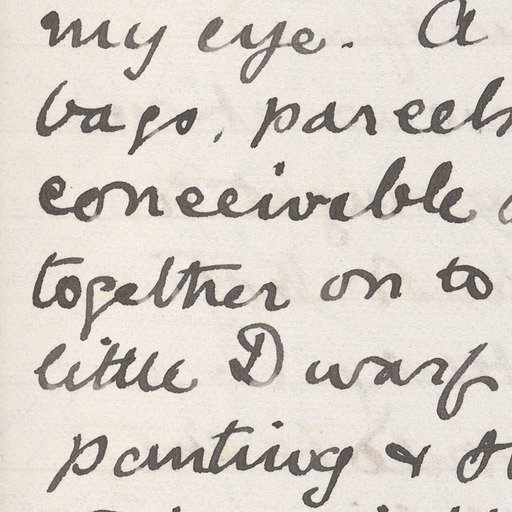 my eye. A
bags, parcels
conceivable
together on to
little Dwarf
panting &